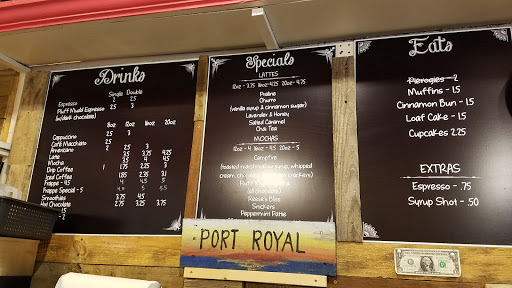 Drinks
Single Double
Espresso 2 2.5
Fluff N'wuld Espresso 2.5 3
(w/dark chocolate)
8oz 12oz 16oz 20oz
Cappuccino 2.5 3
Café Macchiato
Americano 2 2.5 3
Latte
Mocha
Drip Coffee 1 1.75 2.25
Iced Coffee 1.85 2.35 3.1
Frappe - 4.5
Frappe Special - 5
Smoothies 3.75 4.5
Hot Chocolate 2.75 3.25 3.75
Specials
LATTES
12oz - 3.75 16oz - 4.25 20oz - 4.75
Praline
Churro
(vanilla syrup & cinnamon sugar)
Lavender & Honey
Salted Caramel
Chai Tea
MOCHAS
12oz - 4 16oz - 4.5 20oz - 5
Campfire
(toasted marshmallow syrup, whipped
cream, chocolate, graham crackers)
Reese's Bliss
Snickers
Peppermint Pattie
PORT ROYAL
Eats
Pierogies - 2
Muffins - 1.5
Cinnamon Bun - 1.5
Loaf Cake - 1.5
Cupcakes 2.25
EXTRAS
Espresso - .75
Syrup Shot - .50